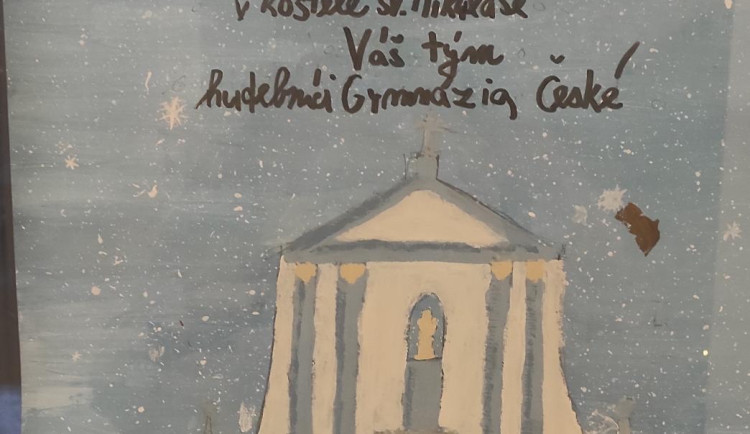 v kostele sv. Mikuláše
Váš tým
hudebníci Gymnázia České